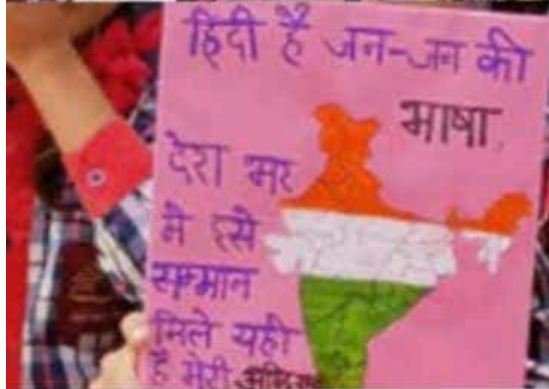 हिंदी है जन-जन की
भाषा
देश भर
मे इसे
सम्मान
मिले यही
है मेरी